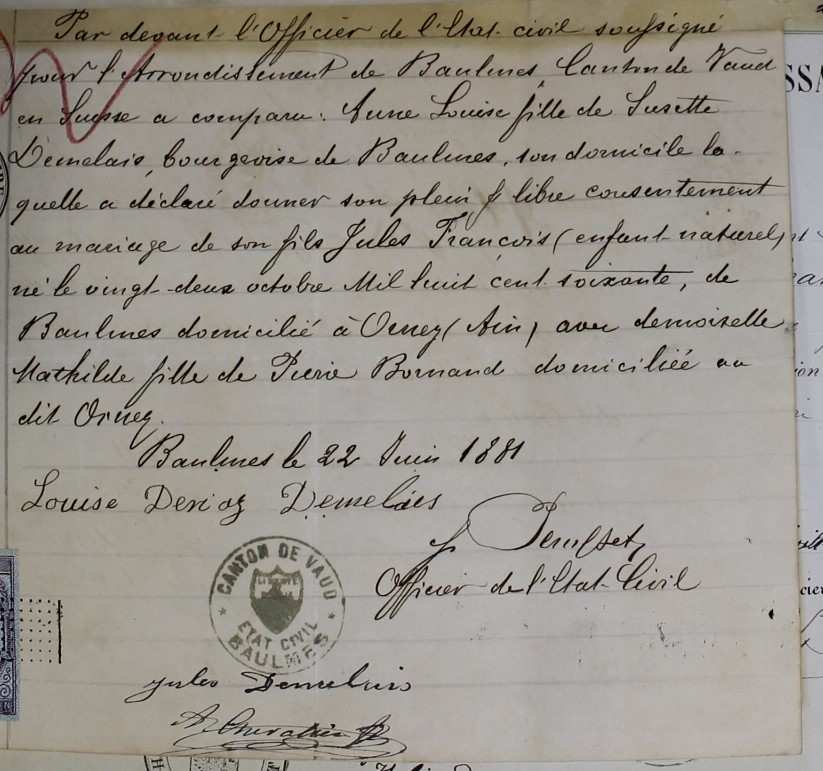 Par devant l'Officier de l'Etat-civil soussigné
pour l'Arrondissement de Baulmes, Canton de Vaud
en Suisse a comparu : Anne Louise fille de Susette
Demelais, bourgeoise de Baulmes, son domicile la-
quelle a déclaré donner son plein & libre consentement
au mariage de son fils Jules François (enfant-naturel)
né le vingt-deux octobre Mil huit cent soixante, de
Baulmes domicilié à Ornex (Ain) avec demoiselle
Mathilde fille de Pierre Bornand domiciliée au
dit Ornex.
Baulmes le 22 Juin 1881
Louise Deriaz Demelais
Officier de l'Etat-Civil
CANTON DE VAUD
LIBERTÉ
ETAT CIVIL
BAULMES
Jules Demelais